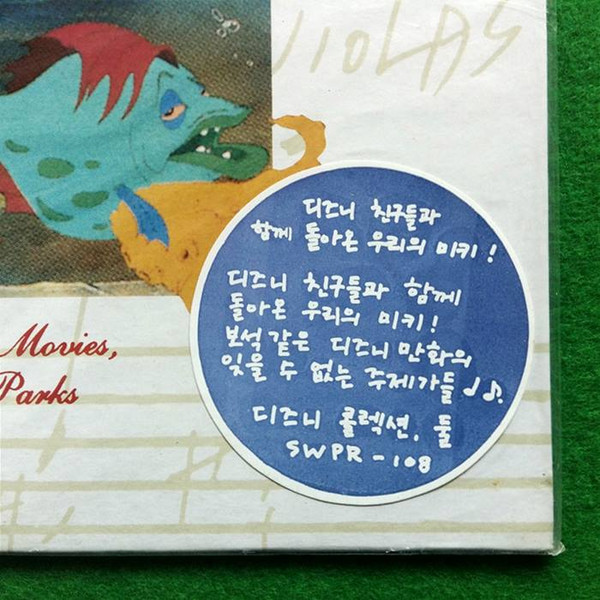 VIOLAS
디즈니 친구들과
함께 돌아온 우리의 미키!
디즈니 친구들과 함께
돌아온 우리의 미키!
보석같은 디즈니만화의
잊을 수 없는 주제가들 ♩♪.
디즈니 콜렉션, 둘
SWPR-108
Movies,
Parks